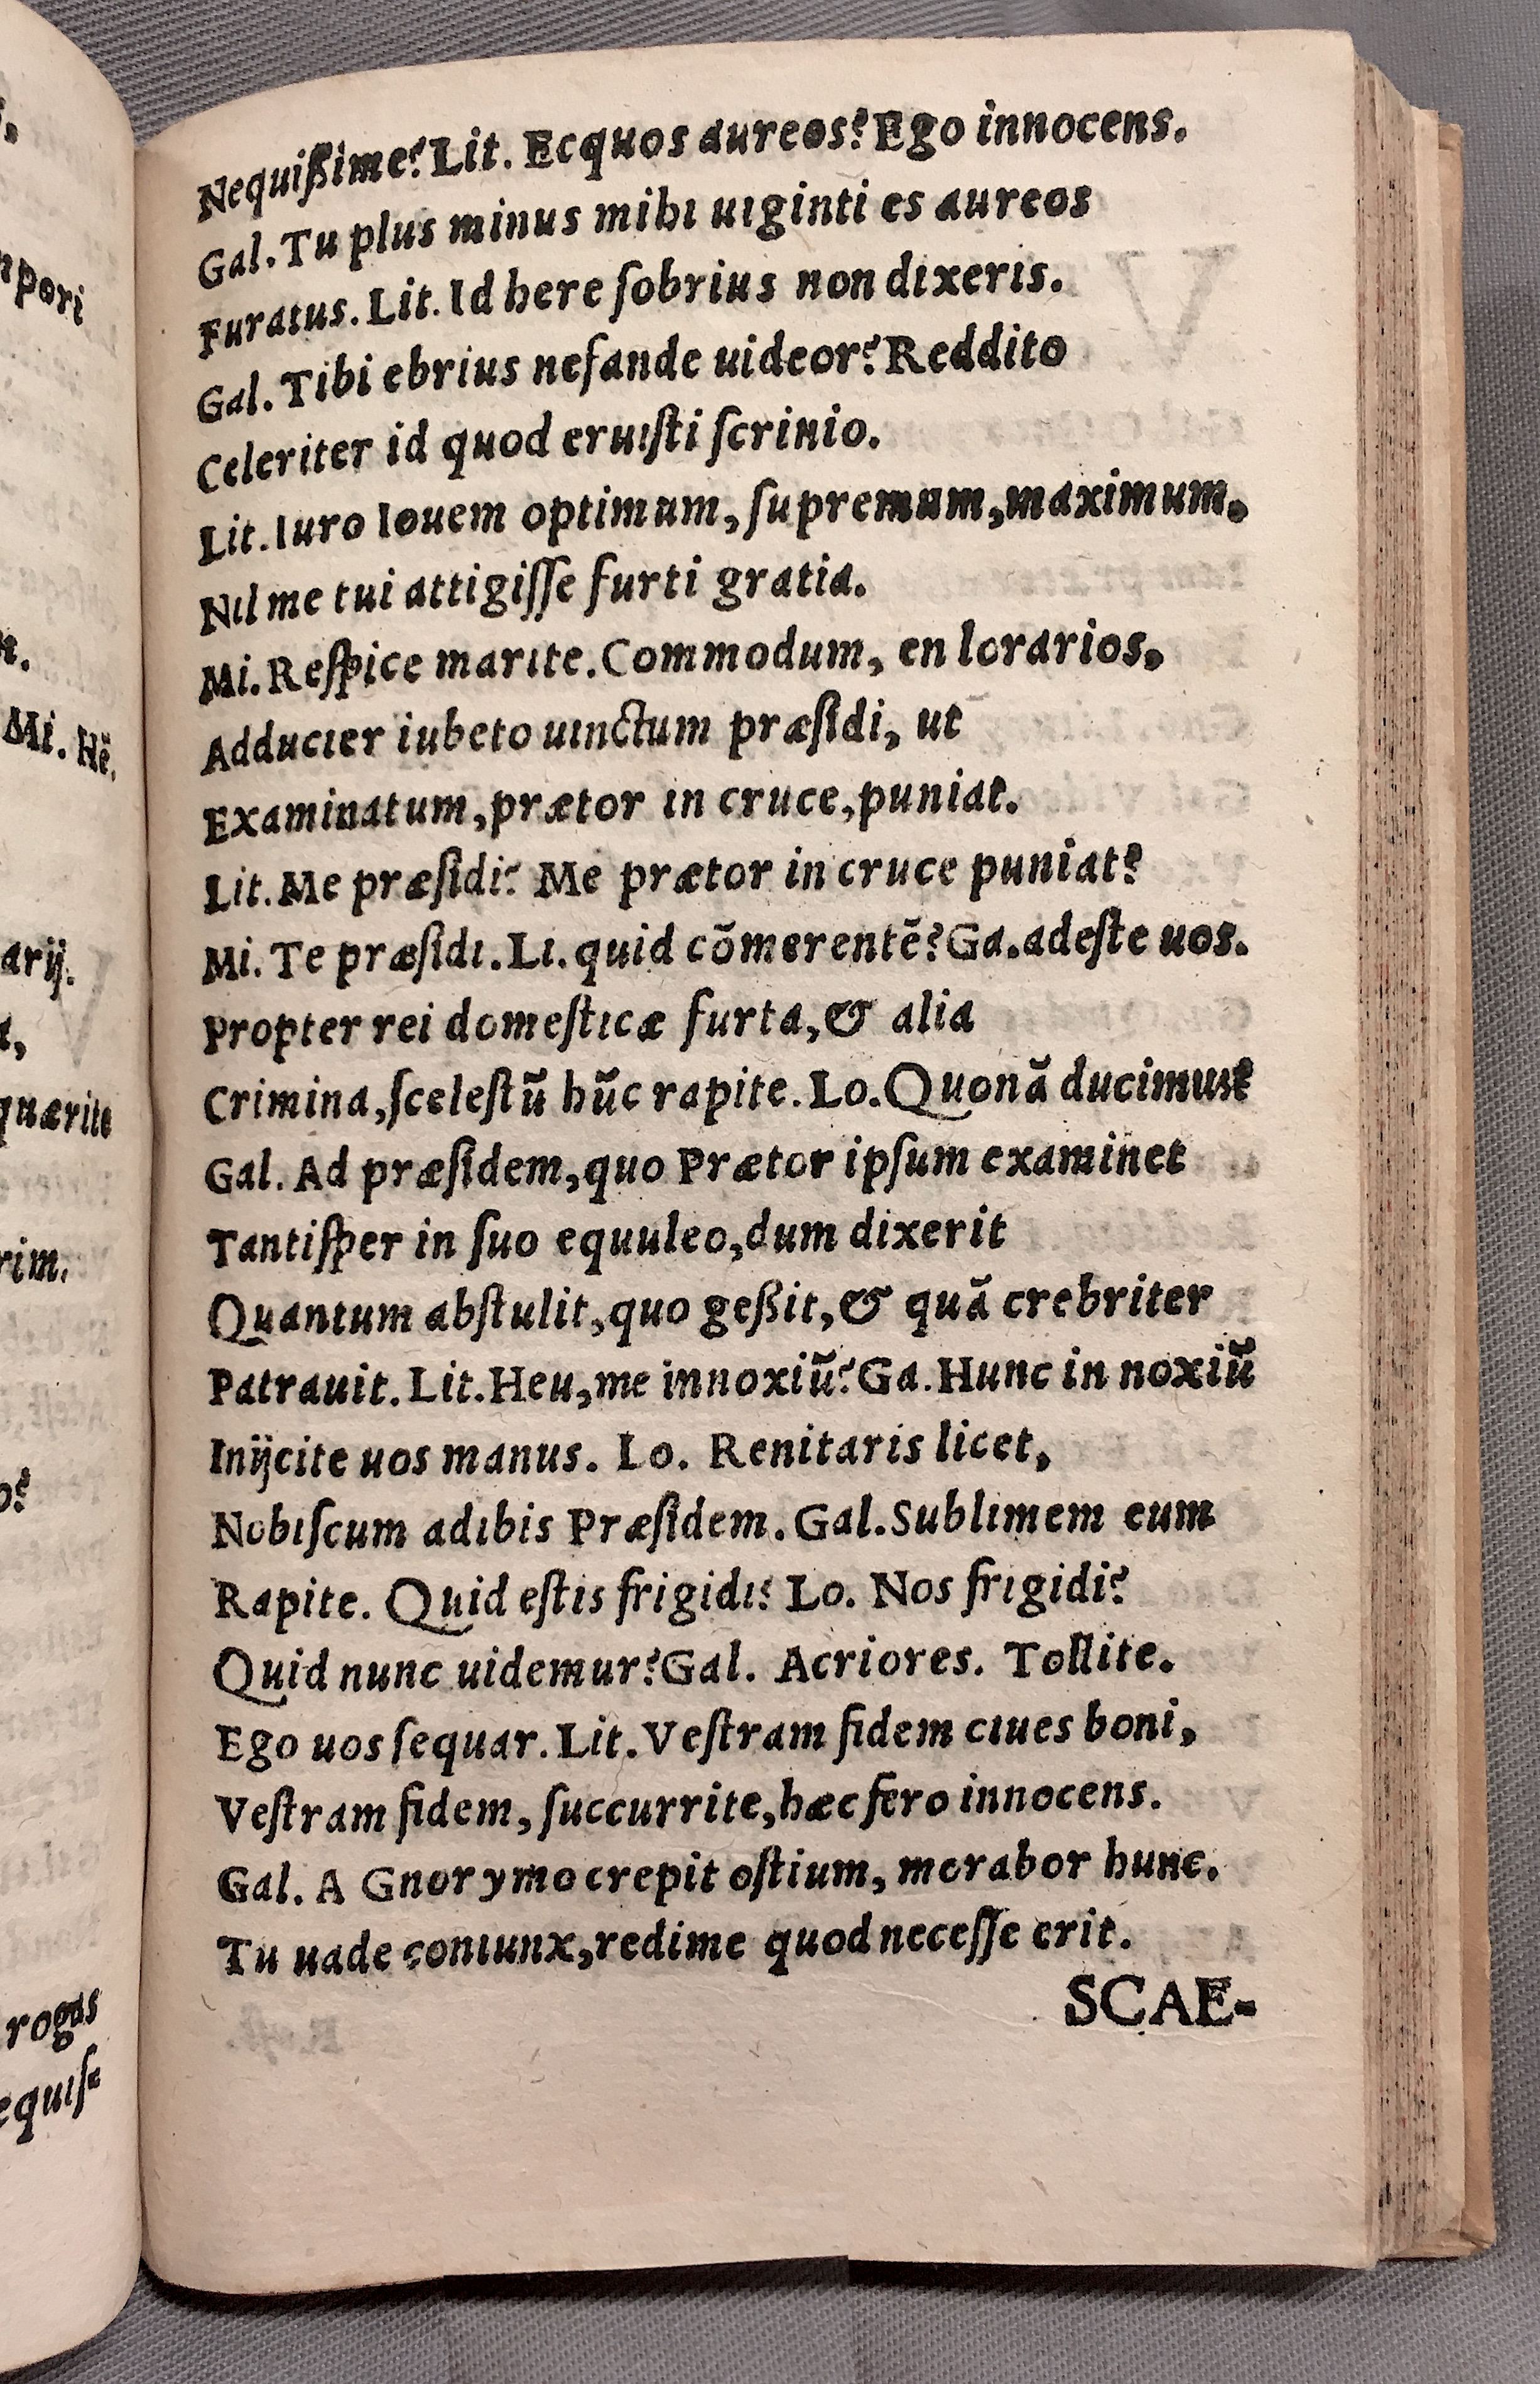 Nequißime? Lit. Ecquos aureos? Ego innocens.
Gal. Tu plus minus mihi uiginti es aureos
Furatus. Lit. Id here ſobrius non dixeris.
Gal. Tibi ebrius nefande uideor? Reddito
Celeriter id quod eruiſti ſcrinio.
Lit. Iuro Iouem optimum, ſupremum, maximum,
Nil me tui attigiſſe furti gratia.
Mi. Reſpice marite. Commodum, en lorarios,
Adducier iubeto uinctum præſidi, ut
Examinatum, prætor in cruce, puniat.
Lit. Me præſidi? Me prætor in cruce puniat?
Mi. Te præſidi. Li. quid cõmerentē? Ga. adeſte uos.
Propter rei domeſticæ furta, & alia
Crimina, ſceleſtū hūc rapite. Lo. Quonā ducimus?
Gal. Ad præſidem, quo Prætor ipſum examinet
Tantiſper in ſuo equuleo, dum dixerit
Quantum abſtulit, quo geßit, & quā crebriter
Patrauit. Lit. Heu, me innoxiū? Ga. Hunc in noxiū
Inijcite uos manus. Lo. Renitaris licet,
Nobiſcum adibis Præſidem. Gal. Sublimem eum
Rapite. Quid eſtis frigidi? Lo. Nos frigidi?
Quid nunc uidemur? Gal. Acriores. Tollite.
Ego uos ſequar. Lit. Veſtram fidem ciues boni,
Veſtram fidem, ſuccurrite, hæc fero innocens.
Gal. A Gnorymo crepit oſtium, morabor hunc.
Tu uade coniunx, redime quod neceſſe erit.
SCAE-
npori
Mi. Hē.
arij.
quærite
rim.
rogas
equiſ